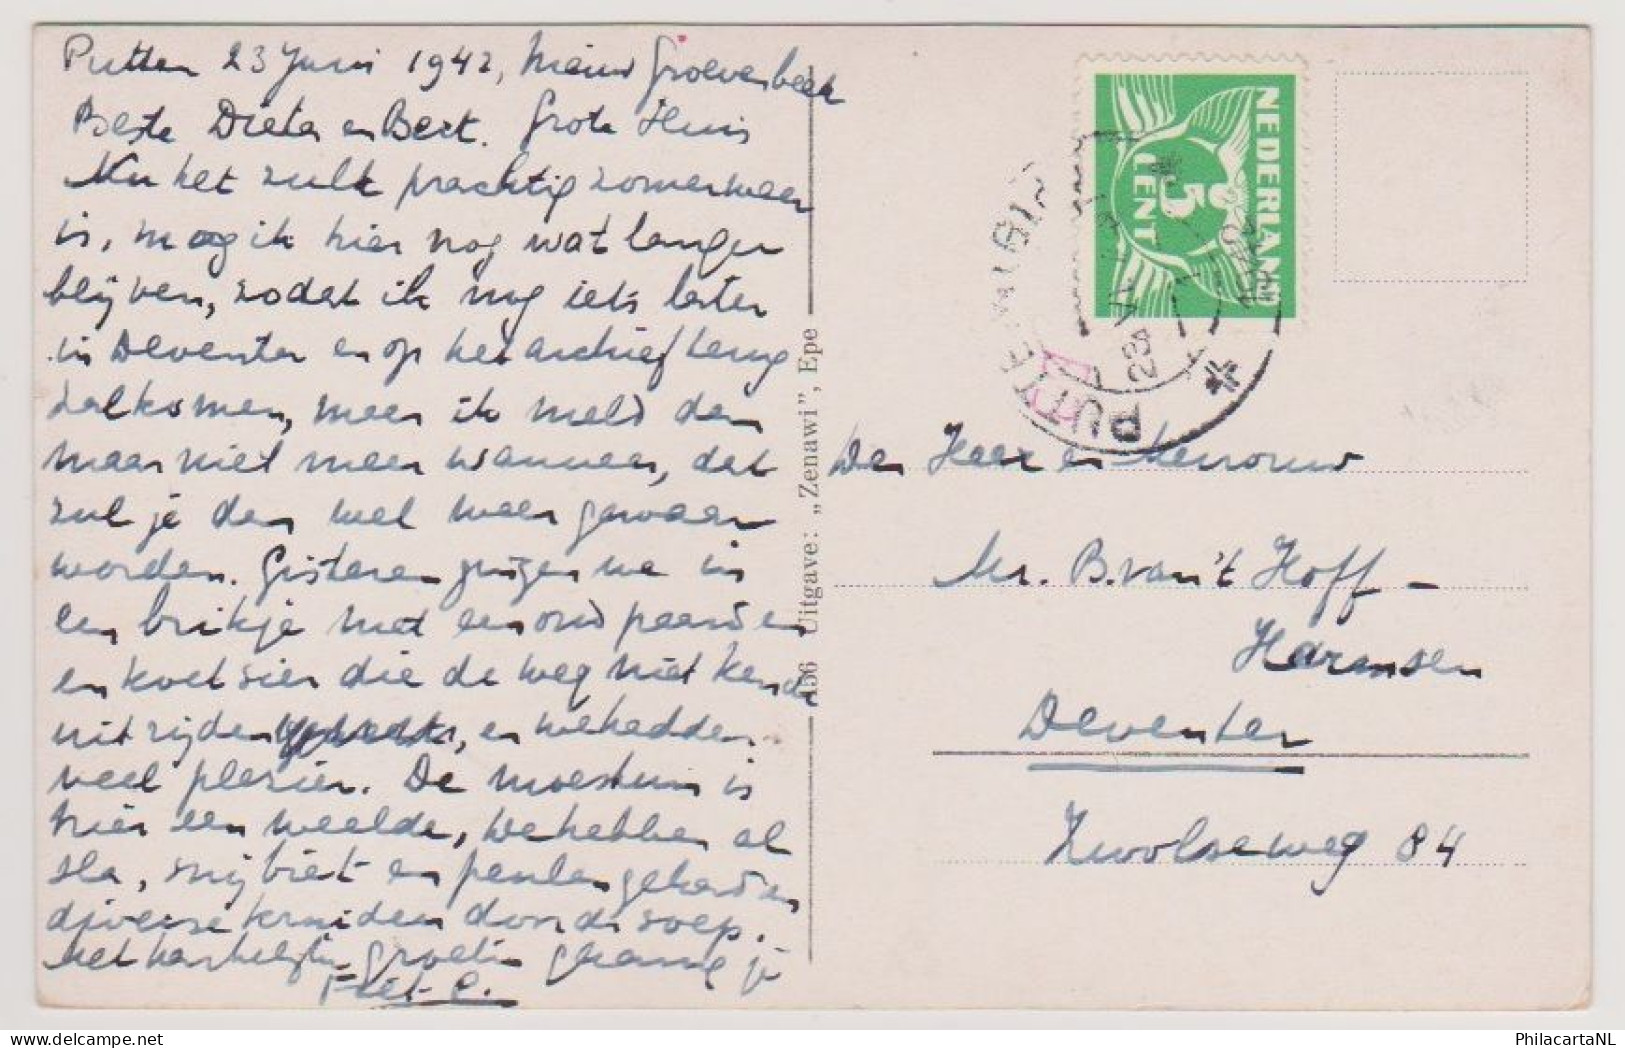 Putten 23 Juni 1942, Nieuw Groevenbeek
Beste Dieta en Bert. Grote Huis
Nu het zulk prachtig zomerweer
is, mag ik hier nog wat langer
blijven, zodat ik nog iets later
in Deventer en op het archief terug
zal komen, maar ik meld dan
maar niet meer wanneer, dat
zul je dan wel weer gewaar
worden. Gisteren gingen we in
een brikje met een oud paard en
en koetsier die de weg niet kende
uit rijden, en we hadden
veel plezier. De moestuin is
hier een weelde, we hebben al
sla, snijbiet en peulen gehad en
diverse kruiden door de soep.
Met hartelijke groeten
Uitgave: „Zenawi”, Epe
NEDERLAND
5
CENT
PUTTEN
De Heer en Mevrouw
Mr. B. van't Hoff -
Harmsen
Deventer
Zwolseweg 84
PhilacartaNL